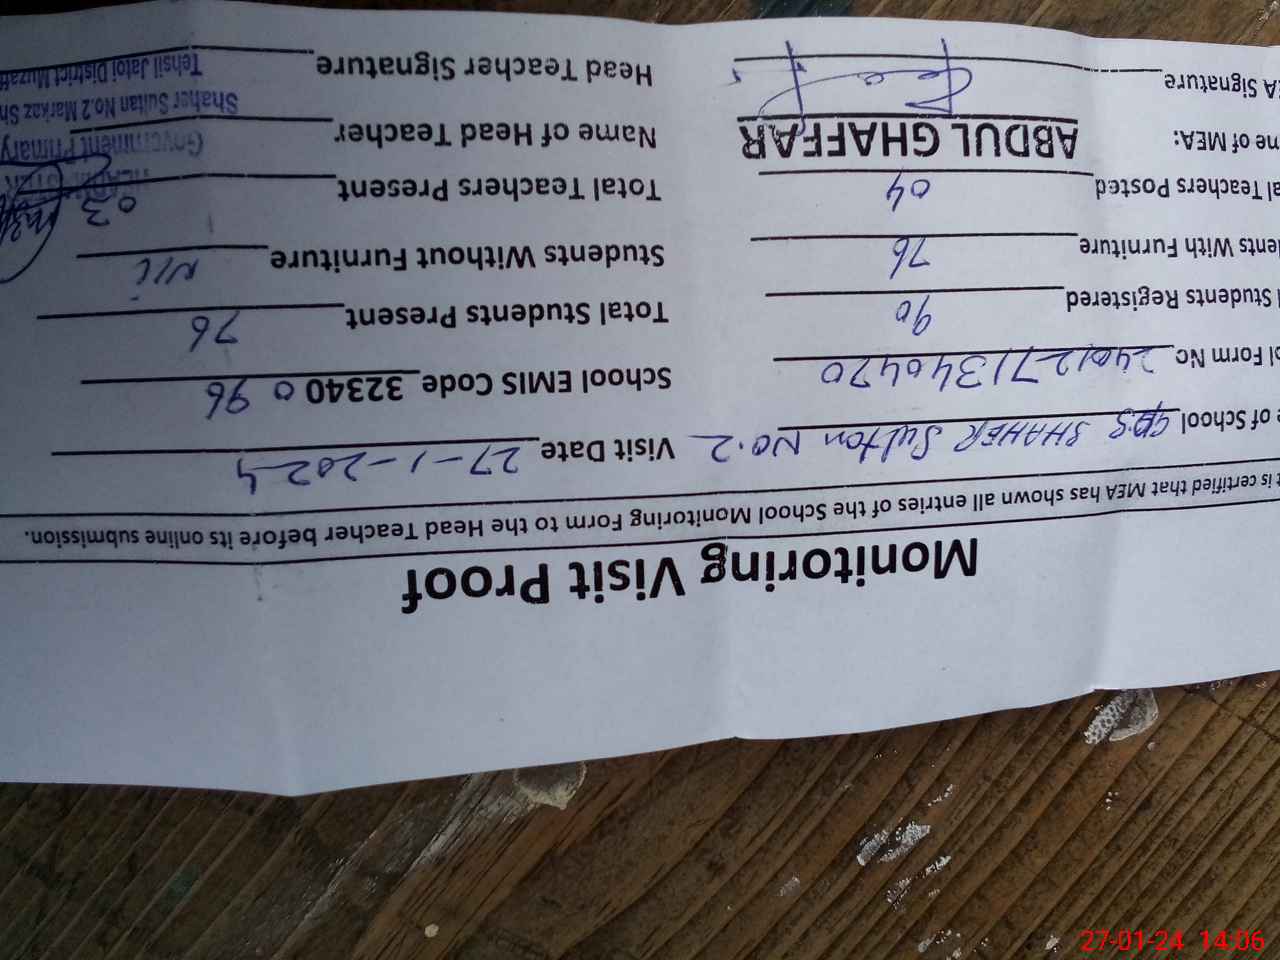 Monitoring Visit Proof
t is certified that MEA has shown all entries of the School Monitoring Form to the Head Teacher before its online submission.
e of School GPS SHAHER Sultan No.2 Visit Date 27-1-2024
ol Form No 2401271340470 School EMIS Code 32340 0 96
l Students Registered 90 Total Students Present 76
ents With Furniture 76 Students Without Furniture Nil
al Teachers Posted 04 Total Teachers Present 03
me of MEA: ABDUL GHAFFAR Name of Head Teacher
EA Signature Head Teacher Signature
Government Primary
Shaher Sultan No.2 Markaz Sh
Tehsil Jatoi District Muzaff
27-01-24 14:06